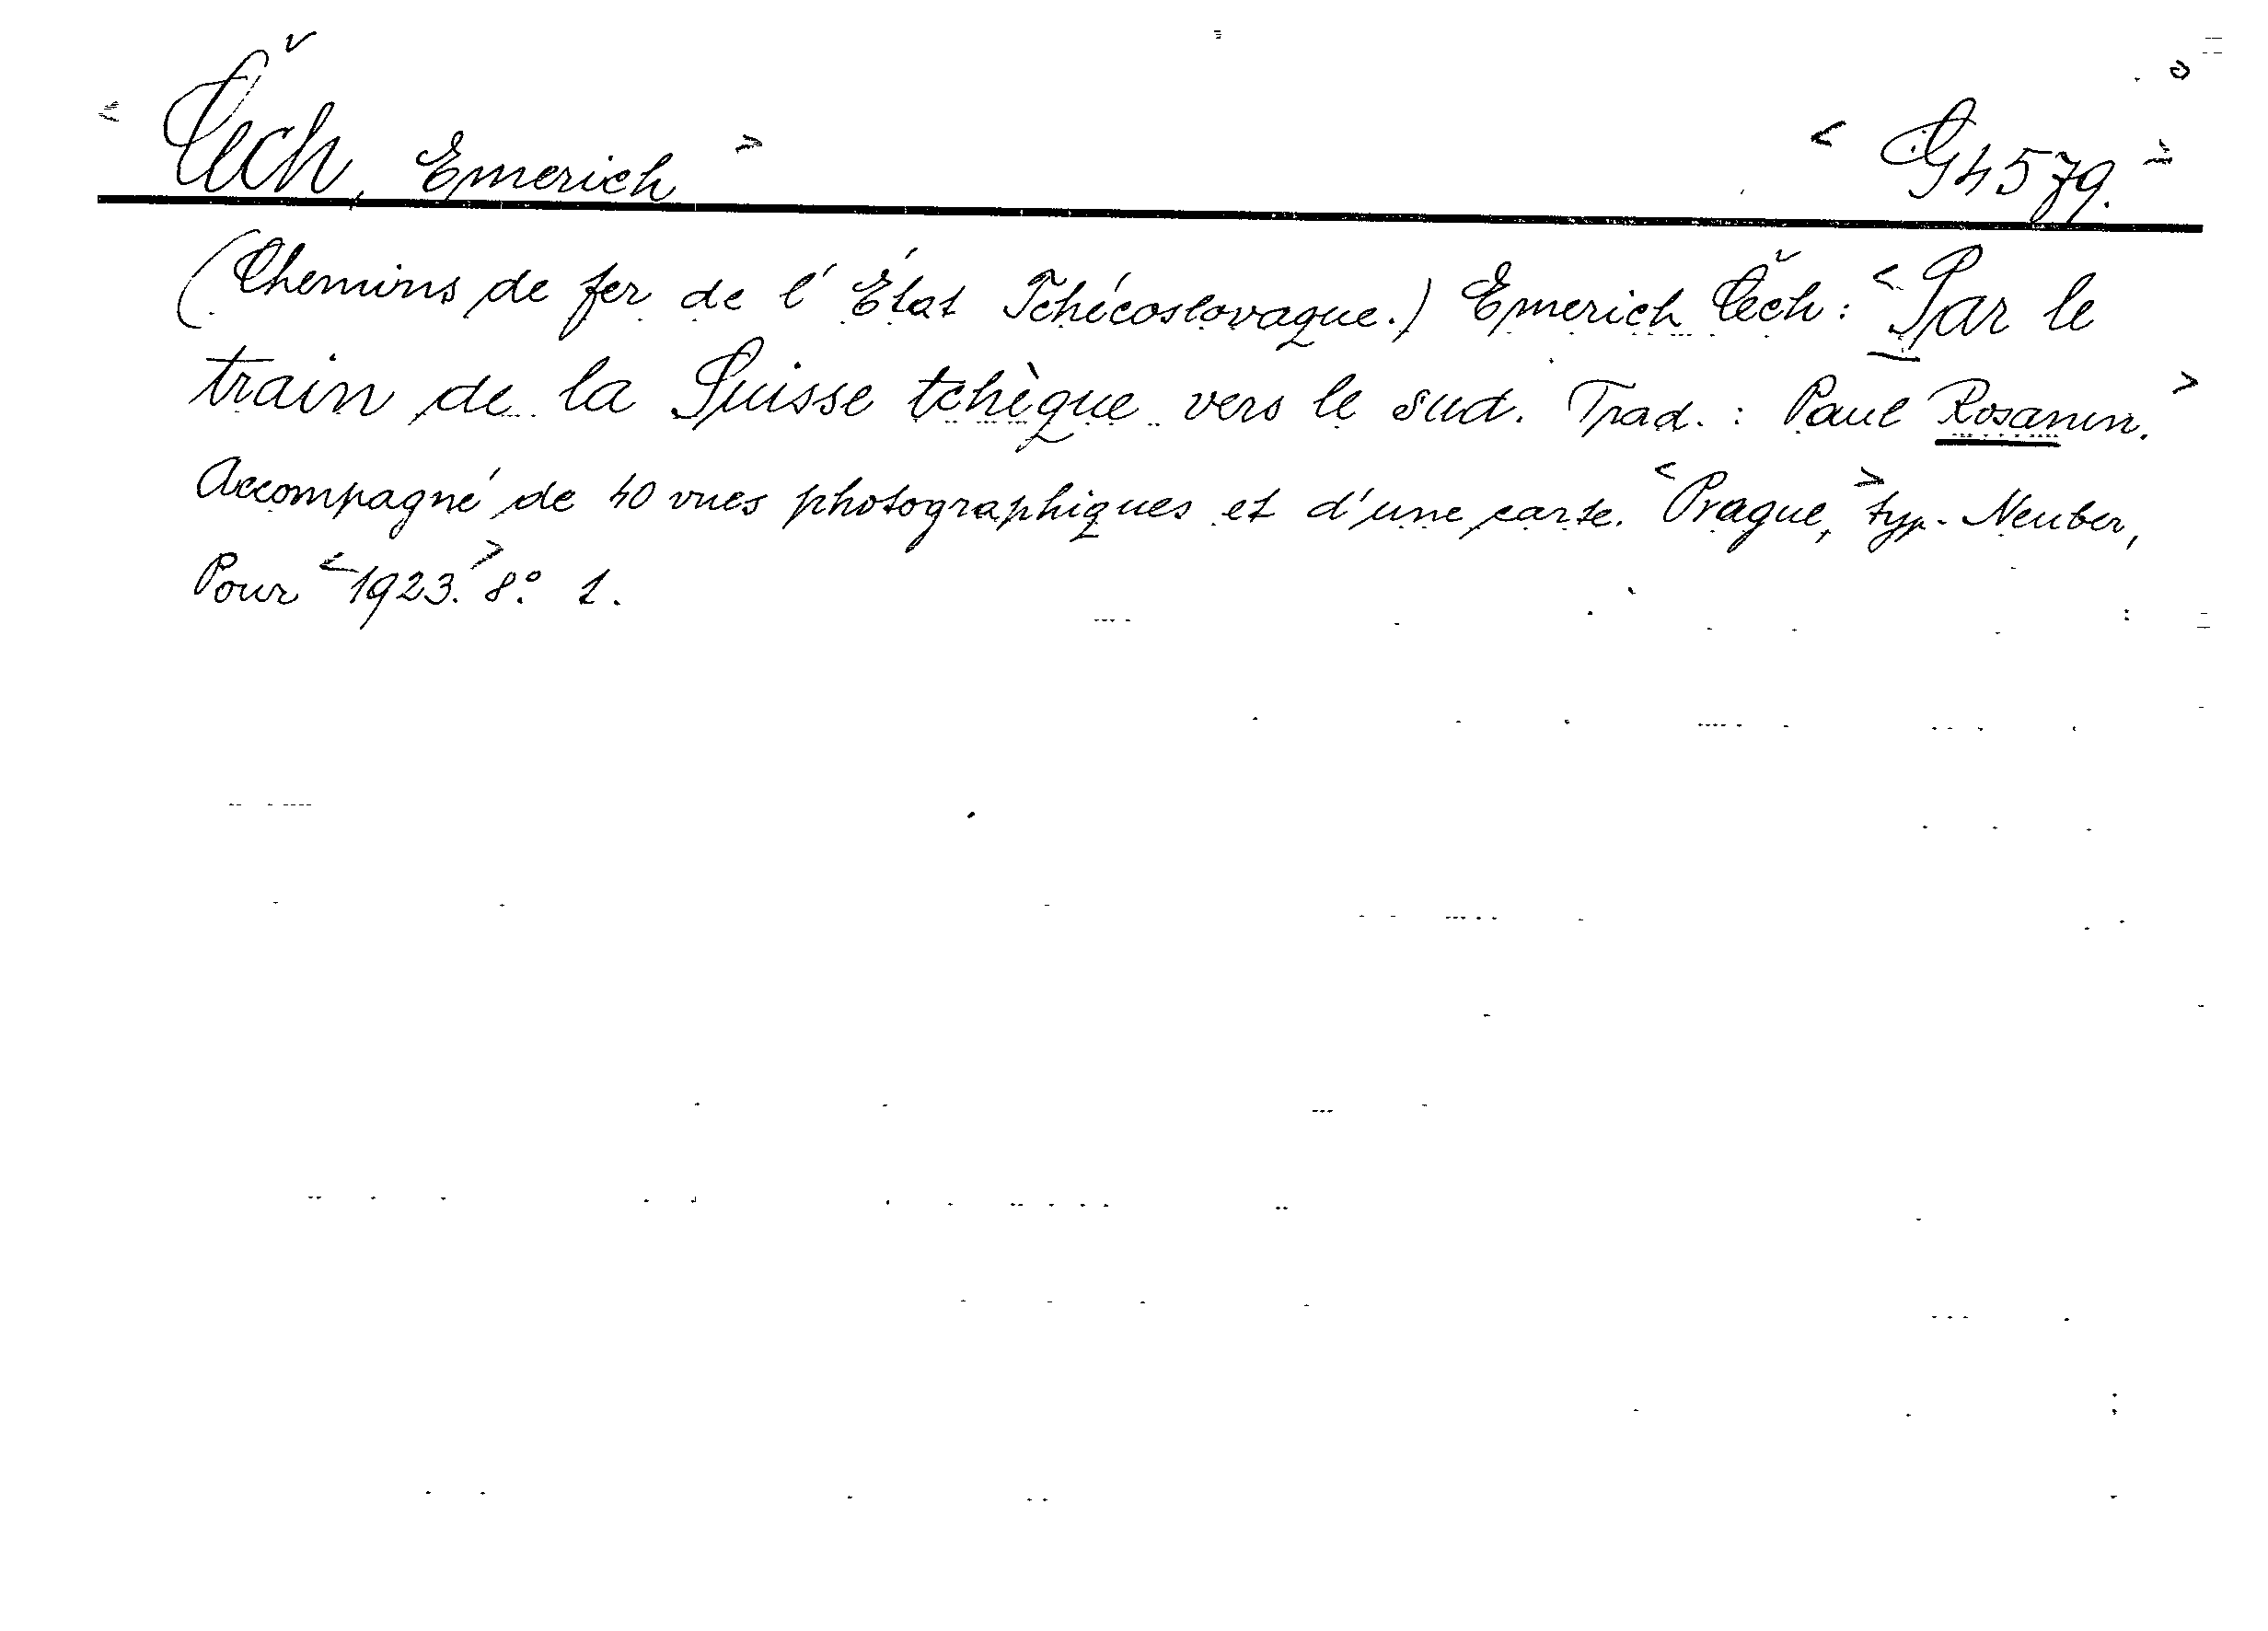 < Čech, Emerich > < G 4579. >
(Chemins de fer de l'État Tchécoslovaque.) Emerich Čech: < Par le
train de la Suisse tchèque vers le sud. Trad.: Paul Rosanin. >
Accompagné de 40 vues photographiques et d'une carte. < Prague, > typ. Neuber,
Pour < 1923. > 8.° 1.